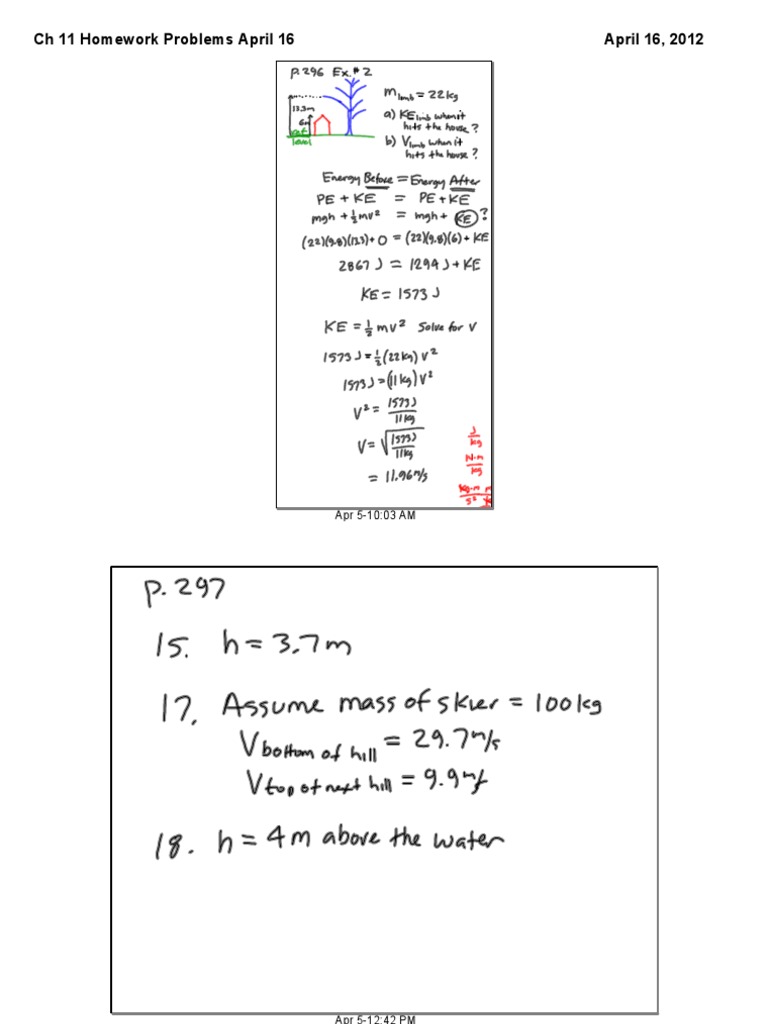 Ch 11 Homework Problems April 16
April 16, 2012
p.296 Ex.#2
13.3m
6m
cut
level
m limb = 22kg
a) KE limb when it
hits the house?
b) V limb when it
hits the house?
Energy Before = Energy After
PE + KE = PE + KE
mgh + ½mv² = mgh + KE ?
(22)(9.8)(13.3)+0 = (22)(9.8)(6)+KE
2867 J = 1294 J + KE
KE = 1573 J
KE = ½ mv² Solve for V
1573 J = ½(22kg) v²
1573 J = (11kg) v²
V² = 1573J/11kg
V = √1573J/11kg
= 11.96 m/s
J/kg
Apr 5-10:03 AM
p. 297
15. h = 3.7m
17. Assume mass of skier = 100kg
V bottom of hill = 29.7 m/s
V top of next hill = 9.9 m/s
18. h = 4m above the water
Apr 5-12:42 PM